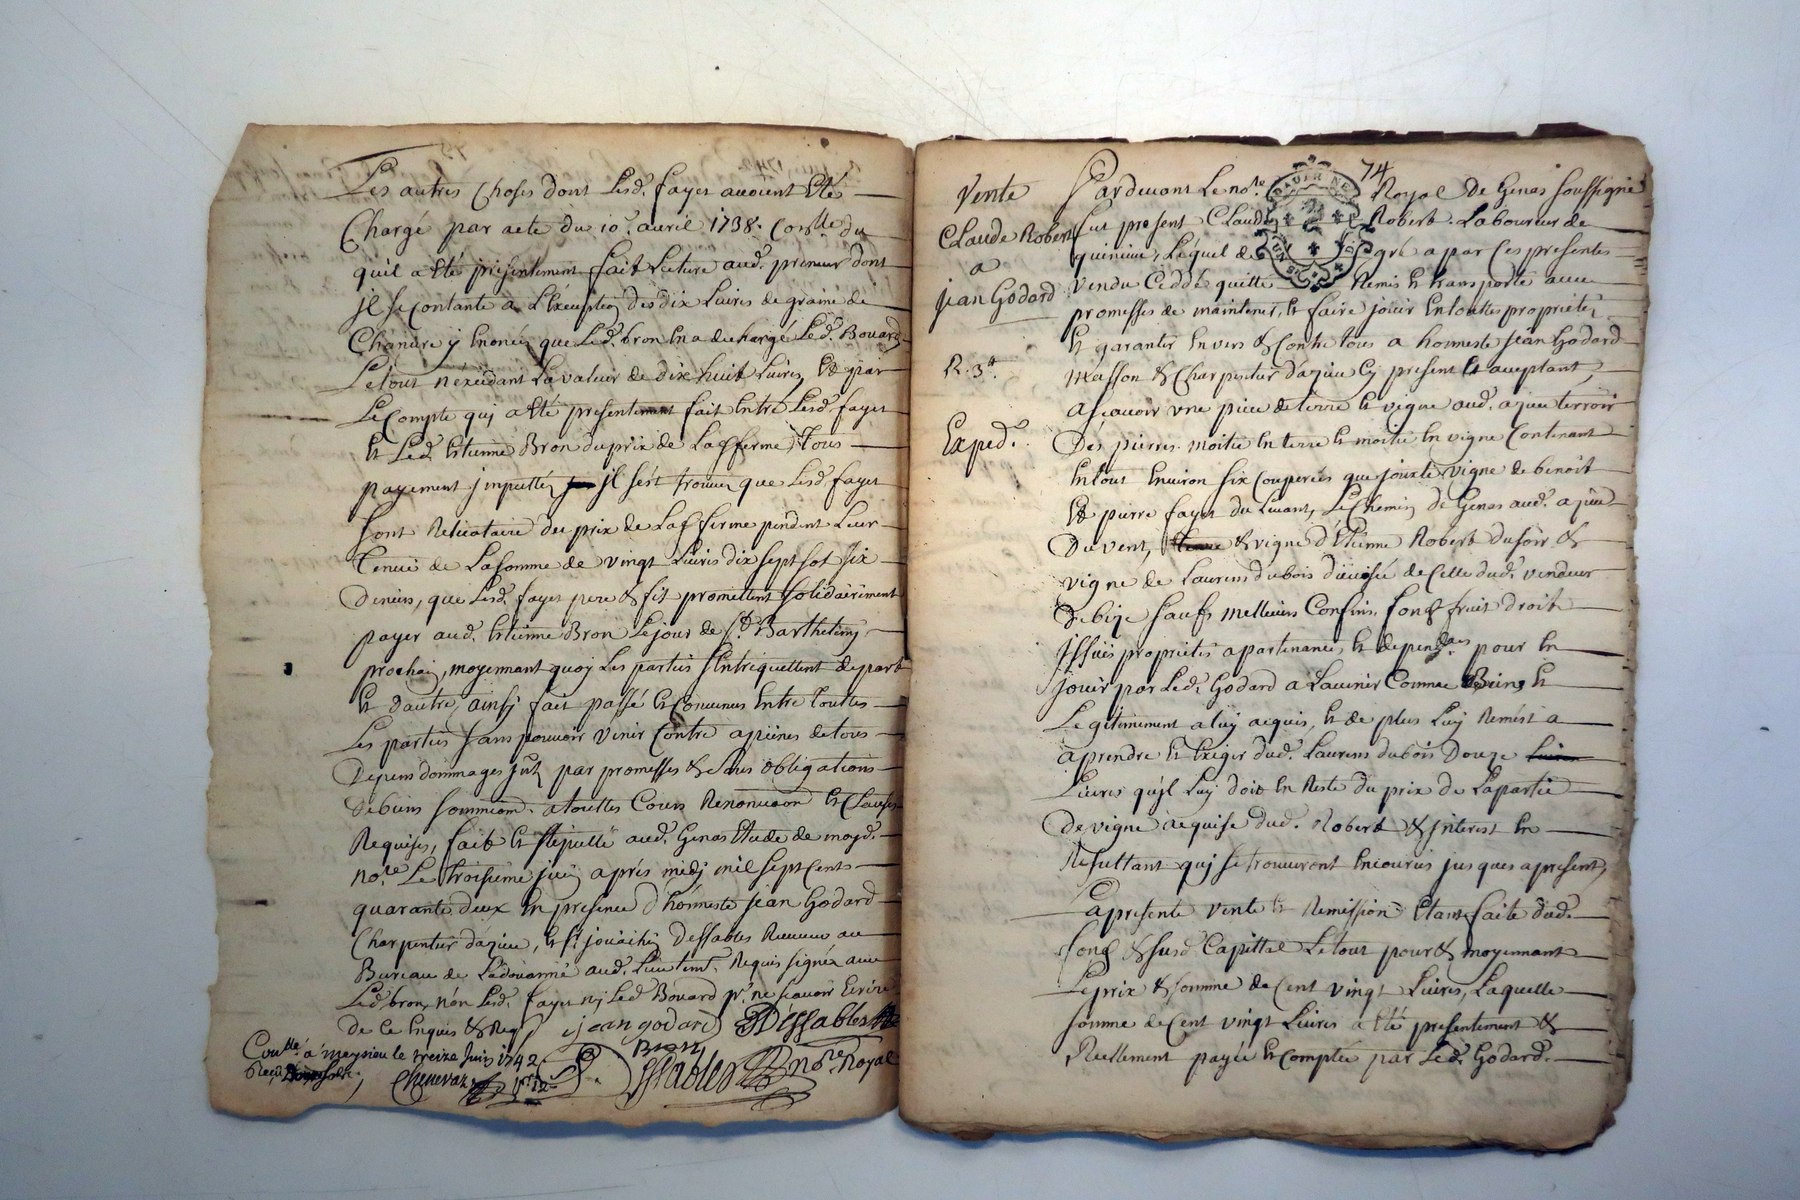 Les autres Choses dont Lesd. fayet avoient Eté
Chargé par acte du 10e. avril 1738. Con.lle du
quil a Eté presentement fait Lecture aud. preneur dont
jl se contante a L'Exception des dix Livres de graine de
Chanvre y Enoncé que Led. bron En a dechargé Led. Bouard
Letout n'exedant La valeur de dix huit Livres, Et par
Le Compte quj a Eté presentement fait Entre Lesd. fayet
Et Led. Etienne Bron du prix de Lad. ferme Tous
payement jmputtés jl s'est trouvé que Lesd. fayet
sont Relicataire du prix de Lad. ferme pendent Leur
Tenue de La somme de vingt Livres dix sept sol six
Deniers, que Lesd. fayet pere & fils promettent solidairement
payer aud. Etienne Bron Lejour de St. Barthelemy
prochain, moyennant quoy Les parties S'Entriquettent depart
Et d'autre, ainsj fait passé Et Convenus Entre touttes
Les parties sans pouvoir venir Contre apeines de tous
Depens dommages par promesses & obligations
De biens a touttes Cours Renon Et Clauses
Requises, fait Et stipullé aud. Genas Etude de moyd.
no.re Le troisieme juin aprés midj mil sept Cents
quarante deux En presence d'honneste jean Godard
Charpentier d'azieu, Et Sr. joüachin Dessables Receveur au
Bureau de La doüanne aud. Lieu tem. Requis signés avec
Led. bron, non Lesd. fayet nj Led. Boüard pr. ne sçavoir Ecrire
de Ce Enquis & Req. jean godard Dessables
Bron
Con.llé a meyzieu le treize Juin 1742
Reçu douze sols. Chenevaz Dessables no.re Royal
74
Vente
Claude Robert
a
jean Godard
R. 3tt.
Exped.e
Pardevant Le no.re Royal de Genas soussigné
fut present Claude Robert Laboureur de
Lequel de gré a par Ces presentes
vendu Ceddé quitté Remis Et transporté avec
promesses de maintenir, Et faire jouir En touttes proprietés
Et garantir Envers & Contre tous a honneste jean Godard
Masson & Charpentier d'azieu Cy present Et aceptant,
a scavoir vne piece de terre Et vigne aud. azieu terroir
Des pierres moitié En terre Et moitié En vigne Contenant
En tout Environ six Couperées que jouxte vigne de benoit
Et pierre fayet du Levant, Le Chemin de Genas aud. azieu
Du vent, terre & vigne d'Etienne Robert du soir &
vigne de Laurens dubois divisée de Celle dud. vendeur
De bize saufs melleurs Confins, fonds fruit droit
Issües proprietés apartenances, Et depend.ces pour En
jouir par Led. Godard a L'avenir Comme Biens Et
Legitimement a luy acquis, Et de plus Luy Remést a
aprendre Et Exiger dud. Laurens dubois Douze Livres
Livres qu'jl Luy doit En Reste du prix de La partie
De vigne acquise dud. Robert & jnterest En
Resultant quj se trouveront Encourus jusques apresent,
La presente vente Et Remission Etant faite dud.
fond & susd. Capittal Le tout pour & moyennant
Le prix & somme de Cent vingt Livres, Laquelle
somme de Cent vingt Livres a Eté presentement &
Reellement payée Et Comptée par Led. Godard.